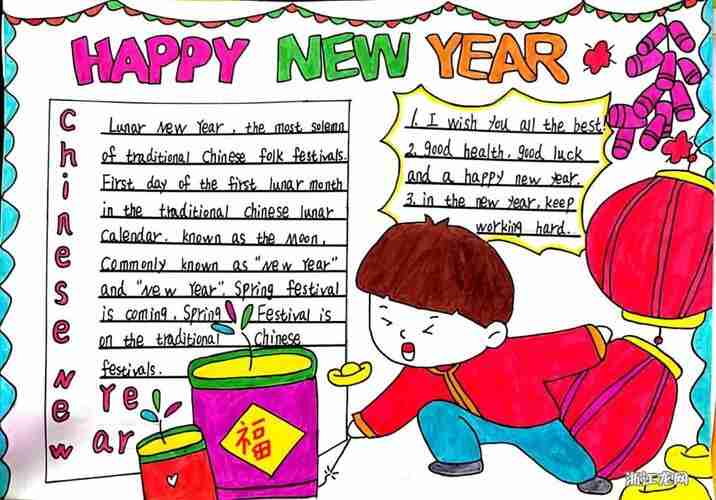 HAPPY NEW YEAR
Chinese New
Year
Lunar New Year, the most solemn
of traditional Chinese folk festivals.
First day of the first lunar month
in the traditional Chinese lunar
calendar. known as the Moon,
Commonly known as "New Year"
and "New Year". Spring festival
is coming, Spring Festival is
on the traditional Chinese
festivals.
1. I wish you all the best!
2. good health, good luck
and a happy new year.
3. in the new year, keep
working hard.
福
浙江龙网